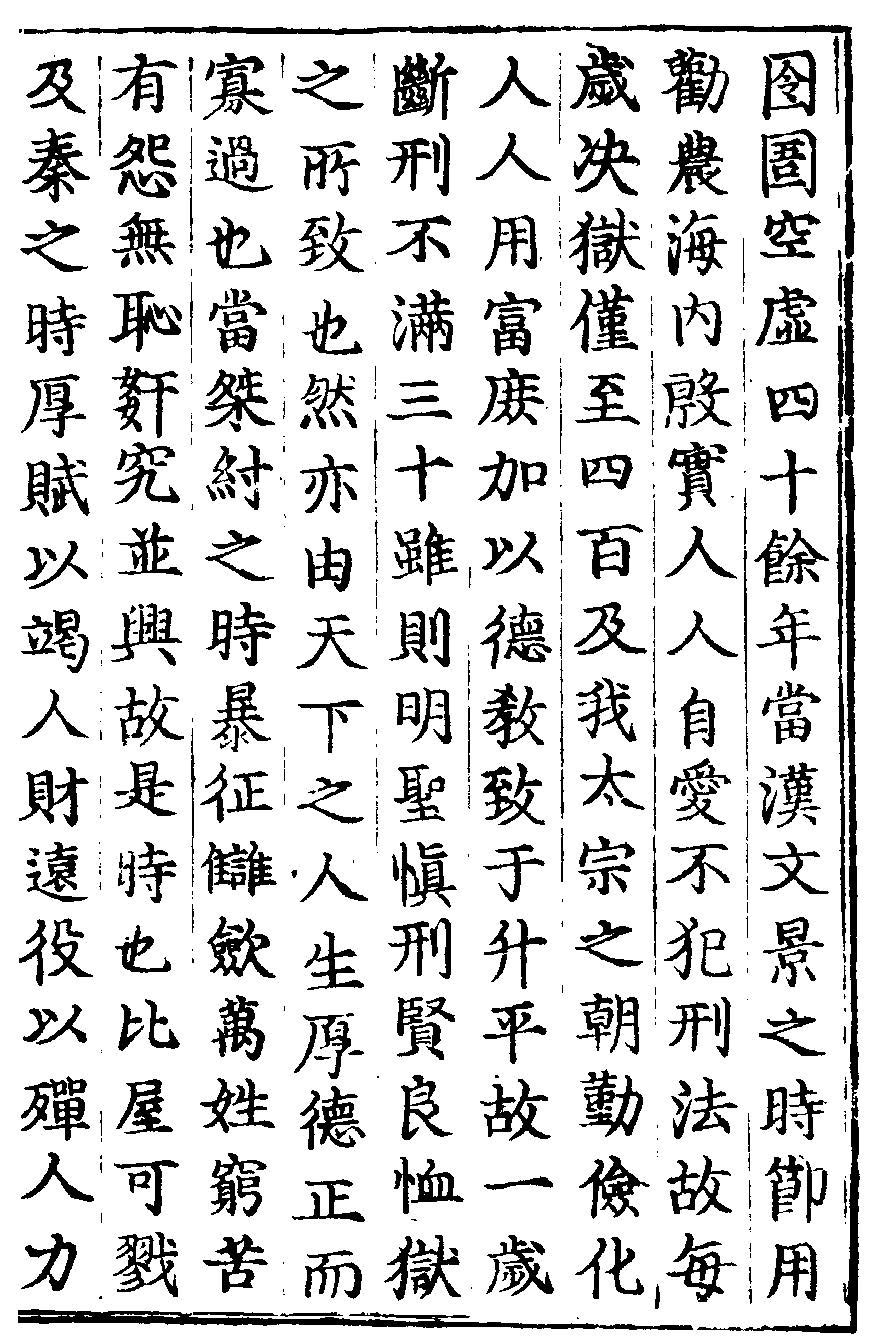 囹圄空虛四十餘年當漢文景之時節用
勸農海內殷實人人自愛不犯刑法故每
歲决獄僅至四百及我太宗之朝勤儉化
人人用富庶加以德教致于升平故一歲
斷刑不滿三十雖則明聖慎刑賢良恤獄
之所致也然亦由天下之人生厚德正而
寡過也當桀紂之時暴征讎斂萬姓窮苦
有怨無恥姧宄並興故是時也比屋可戮
及秦之時厚賦以竭人財遠役以殫人力